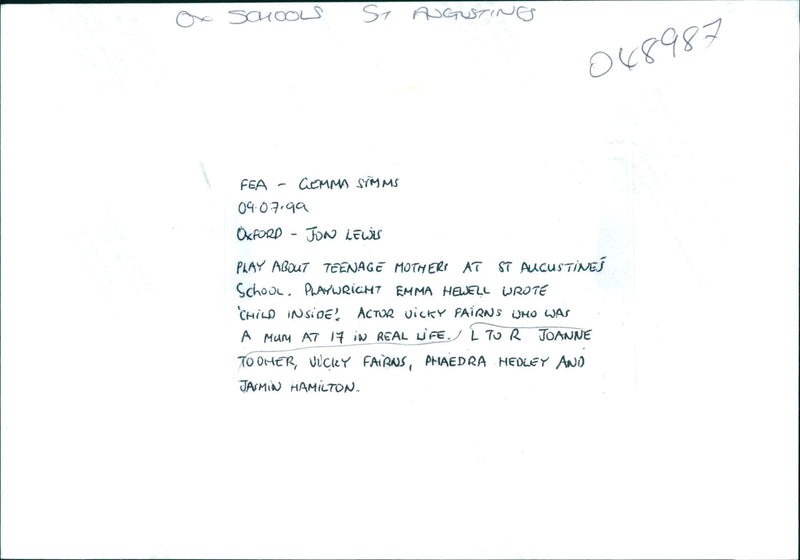 OX SCHOOLS ST AUGUSTINES
048987
FEA - GEMMA SIMMS
09.07.99
OXFORD - JON LEWIS
PLAY ABOUT TEENAGE MOTHERS AT ST AUGUSTINE'S
SCHOOL. PLAYWRIGHT EMMA HEWELL WROTE
'CHILD INSIDE'. ACTOR VICKY FAIRNS WHO WAS
A MUM AT 17 IN REAL LIFE. / L TO R JOANNE
TOOHER, VICKY FAIRNS, PHAEDRA HEDLEY AND
JASMIN HAMILTON.